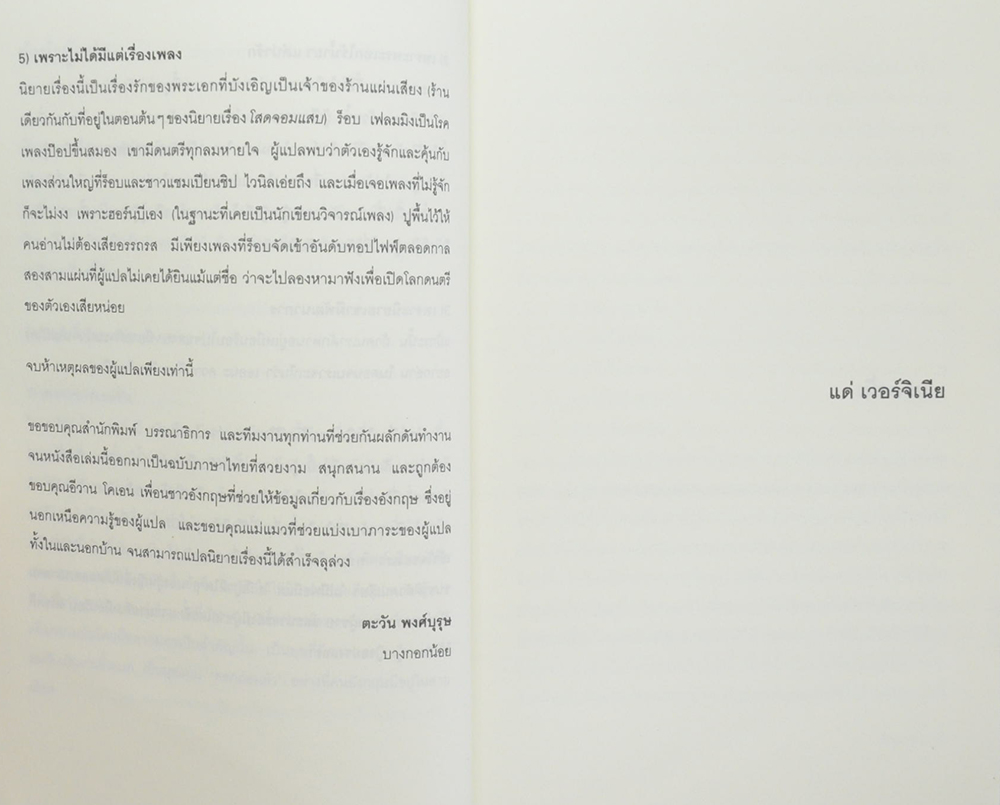 5) เพราะไม่ได้มีแต่เรื่องเพลง
นิยายเรื่องนี้เป็นเรื่องรักของพระเอกที่บังเอิญเป็นเจ้าของร้านแผ่นเสียง (ร้าน
เดียวกันกับที่อยู่ในตอนต้นๆ ของนิยายเรื่อง โสดจอมแสบ) ร็อบ เฟลมมิงเป็นโรค
เพลงป๊อปขึ้นสมอง เขามีดนตรีทุกลมหายใจ ผู้แปลพบว่าตัวเองรู้จักและคุ้นกับ
เพลงส่วนใหญ่ที่ร็อบและชาวแชมเปียนชิป ไวนิลเอ่ยถึง และเมื่อเจอเพลงที่ไม่รู้จัก
ก็จะไม่งง เพราะฮอร์นบีเอง (ในฐานะที่เคยเป็นนักเขียนวิจารณ์เพลง) ปูพื้นไว้ให้
คนอ่านไม่ต้องเสียอรรถรส มีเพียงเพลงที่ร็อบจัดเข้าอันดับทอปไฟฟ์ตลอดกาล
สองสามแผ่นที่ผู้แปลไม่เคยได้ยินแม้แต่ชื่อ ว่าจะไปลองหามาฟังเพื่อเปิดโลกดนตรี
ของตัวเองเสียหน่อย
จบห้าเหตุผลของผู้แปลเพียงเท่านี้
ขอขอบคุณสำนักพิมพ์ บรรณาธิการ และทีมงานทุกท่านที่ช่วยกันผลักดันทำงาน
จนหนังสือเล่มนี้ออกมาเป็นฉบับภาษาไทยที่สวยงาม สนุกสนาน และถูกต้อง
ขอบคุณอีวาน โคเอน เพื่อนชาวอังกฤษที่ช่วยให้ข้อมูลเกี่ยวกับเรื่องอังกฤษ ซึ่งอยู่
นอกเหนือความรู้ของผู้แปล และขอบคุณแม่แมวที่ช่วยแบ่งเบาภาระของผู้แปล
ทั้งในและนอกบ้าน จนสามารถแปลนิยายเรื่องนี้ได้สำเร็จลุล่วง
ตะวัน พงศ์บุรุษ
บางกอกน้อย
แด่ เวอร์จิเนีย